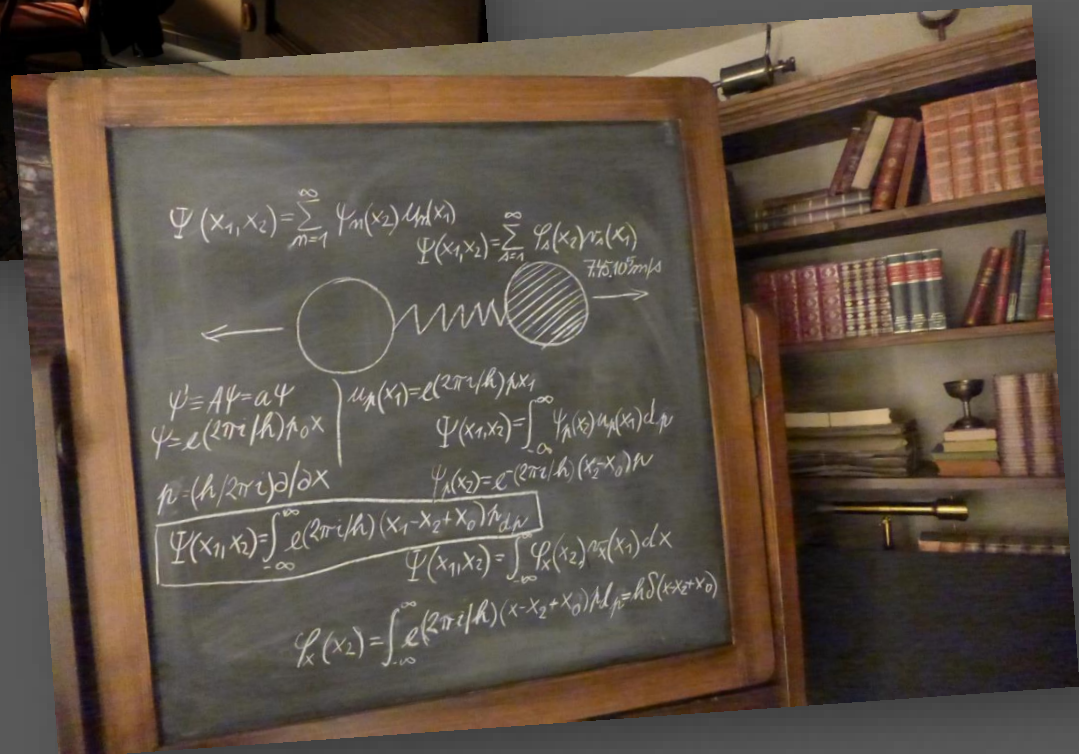 Ψ(x₁,x₂)=∑ₙ₌₁^∞ ψₙ(x₂)uₙ(x₁)
Ψ(x₁,x₂)=∑ₛ₌₁^∞ φₛ(x₂)vₛ(x₁)
7.45.10⁵m/s
ψ'≡Aψ=aψ
uₚ(x₁)=e(2πi/h)px₁
ψ=e(2πi/h)p₀x
Ψ(x₁,x₂)=∫₋∞^∞ ψₚ(x₂)uₚ(x₁)dp
p=(h/2πi)∂/∂x
ψₚ(x₂)=e⁻(2πi/h)(x₂-x₀)p
Ψ(x₁,x₂)=∫₋∞^∞ e(2πi/h)(x₁-x₂+x₀)p dp
Ψ(x₁,x₂)=∫₋∞^∞ φₓ(x₂)vₓ(x₁)dx
φₓ(x₂)=∫₋∞^∞ e(2πi/h)(x-x₂+x₀)p dp=hδ(x-x₂+x₀)